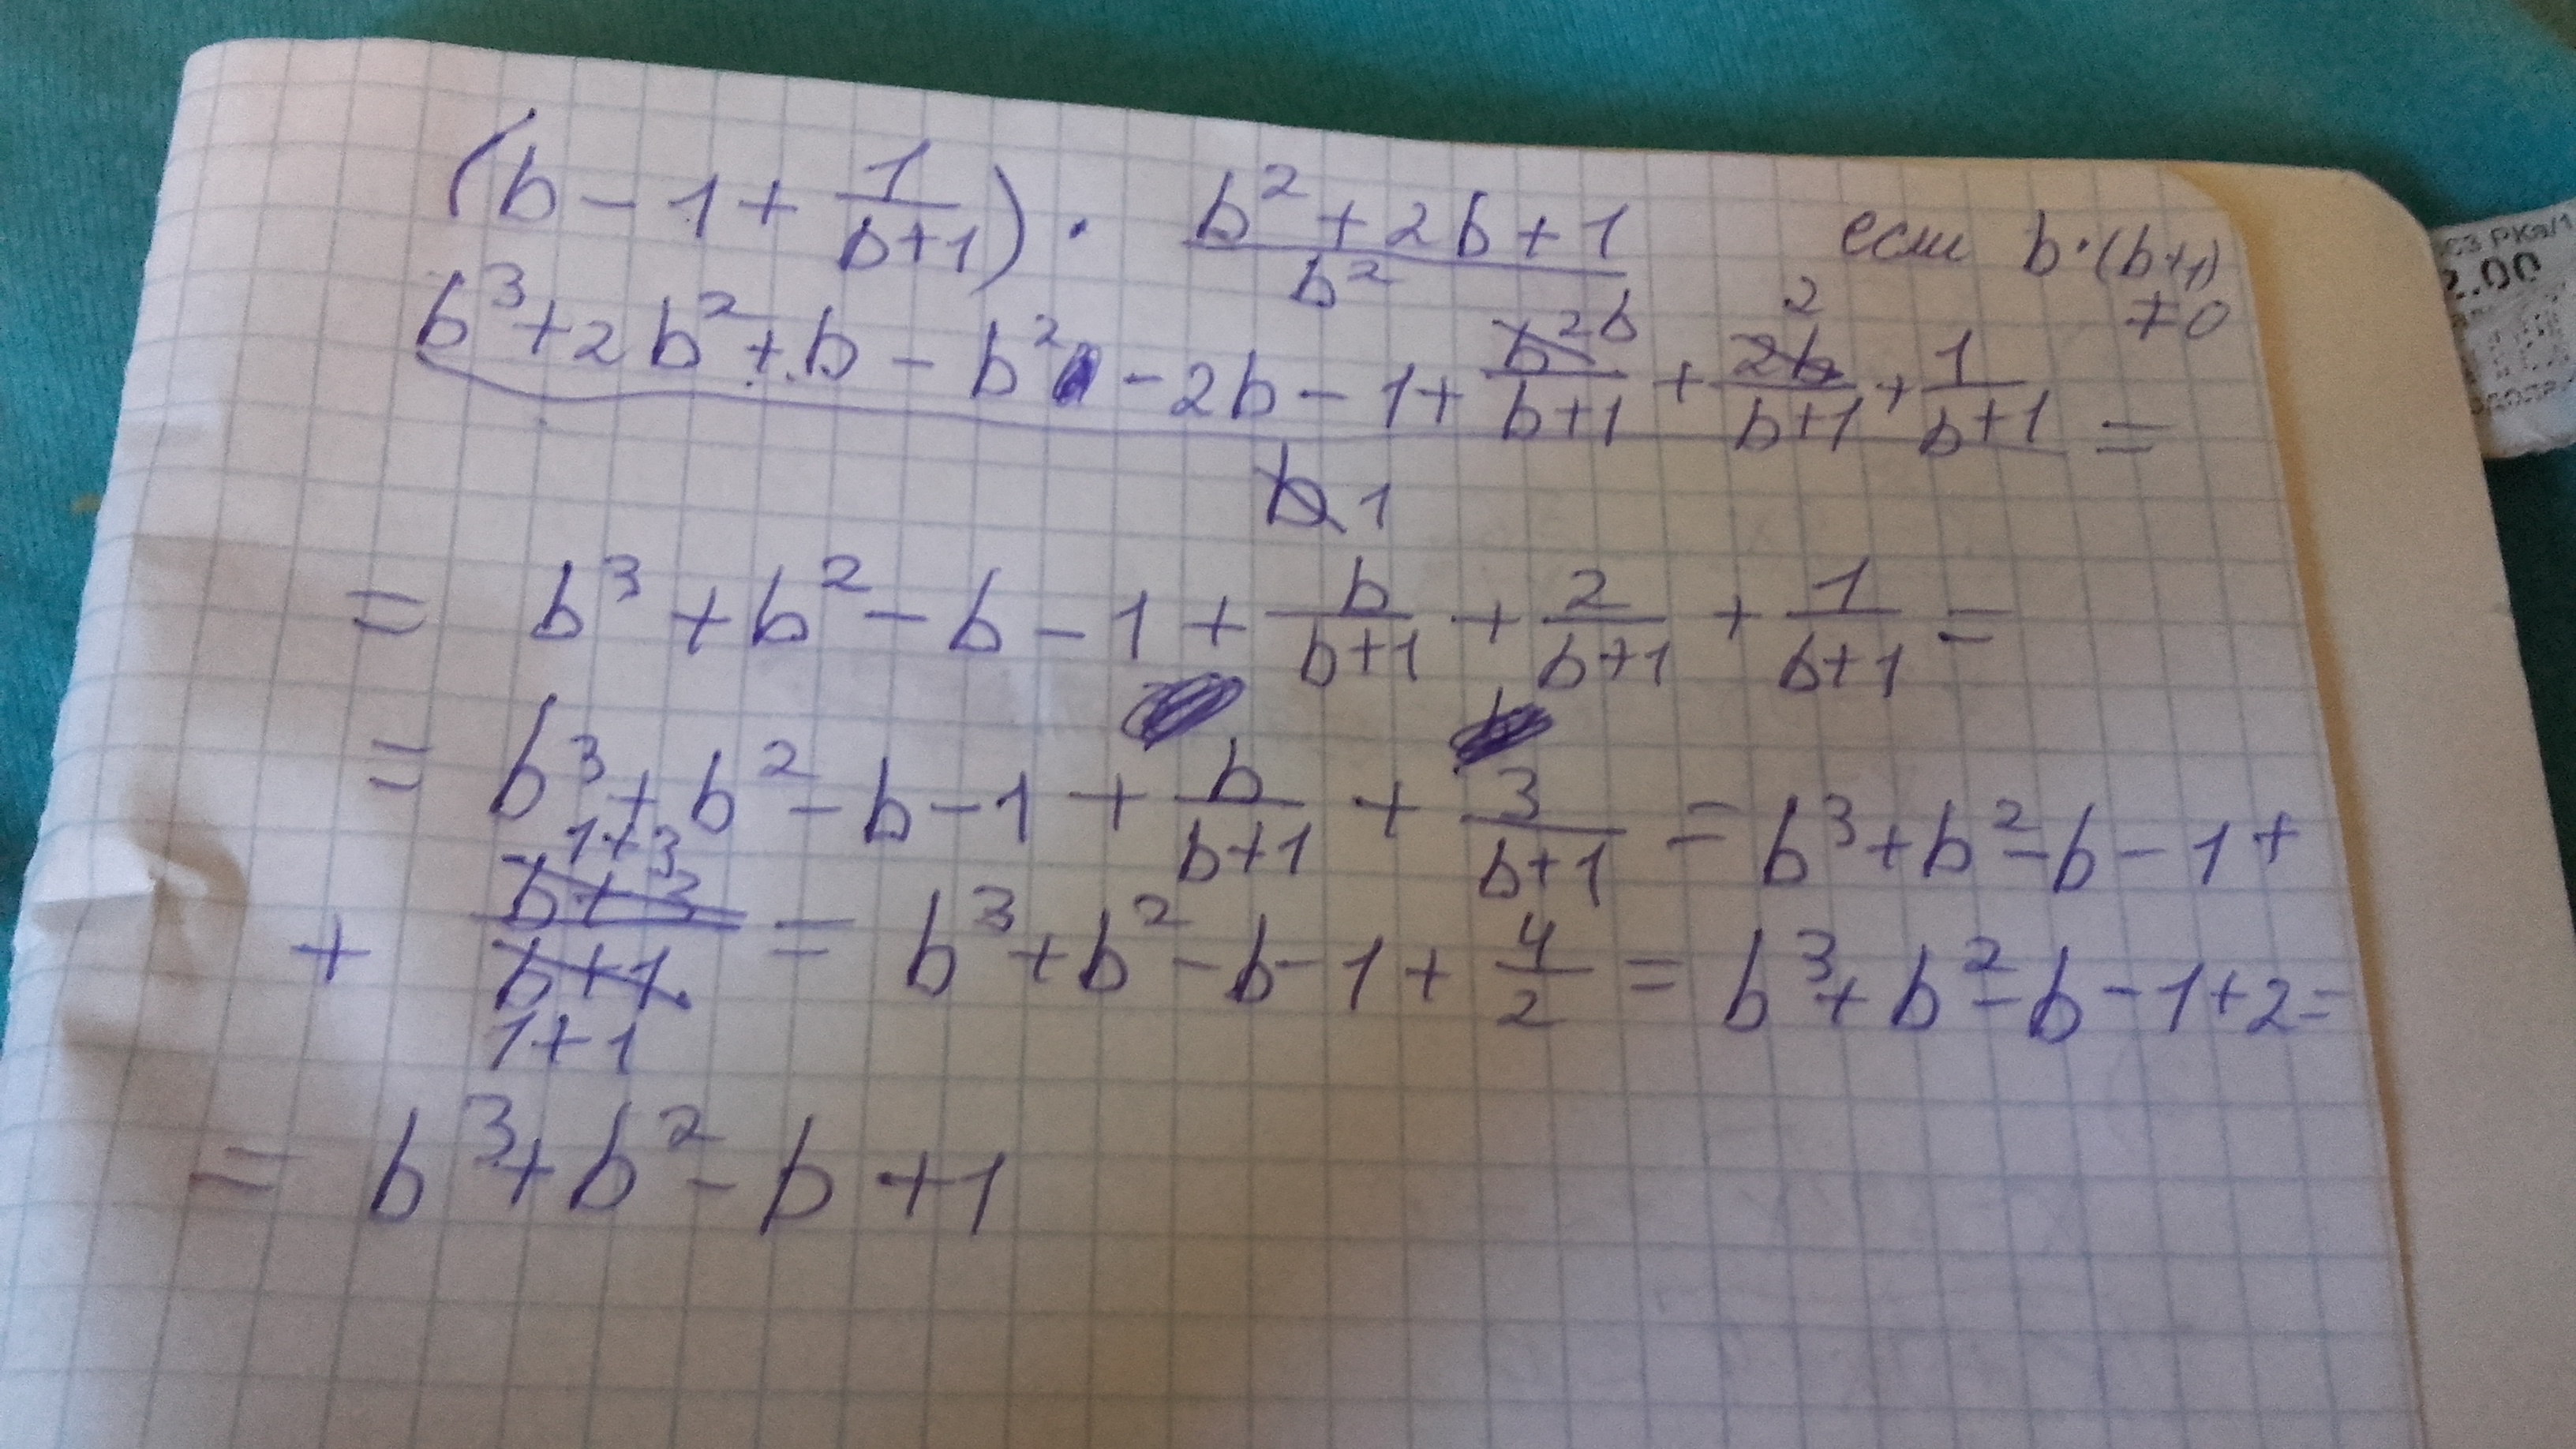 (b - 1 + 1/(b+1)) · (b² + 2b + 1)/b² если b·(b+1) ≠ 0
(b³ + 2b² + b - b² - 2b - 1 + b²/(b+1) b + 2b/(b+1) 2 + 1/(b+1))/b 1 =
= b³ + b² - b - 1 + b/(b+1) + 2/(b+1) + 1/(b+1) =
= b³ + b² - b - 1 + b/(b+1) + 3/(b+1) = b³ + b² - b - 1 +
+ (b+3)/(b+1) 1+3 1+1 = b³ + b² - b - 1 + 4/2 = b³ + b² - b - 1 + 2 =
= b³ + b² - b + 1
2.00